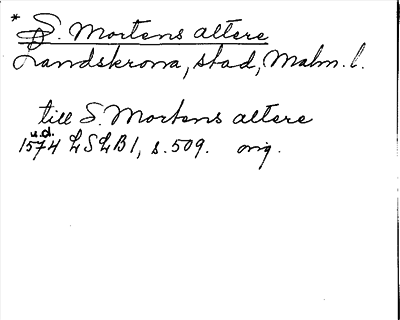 * S. Mortens altere
Landskrona, stad, Malm. l.
till S. Mortens altere
u.d.
1574 LSLB 1, s. 509. orig.